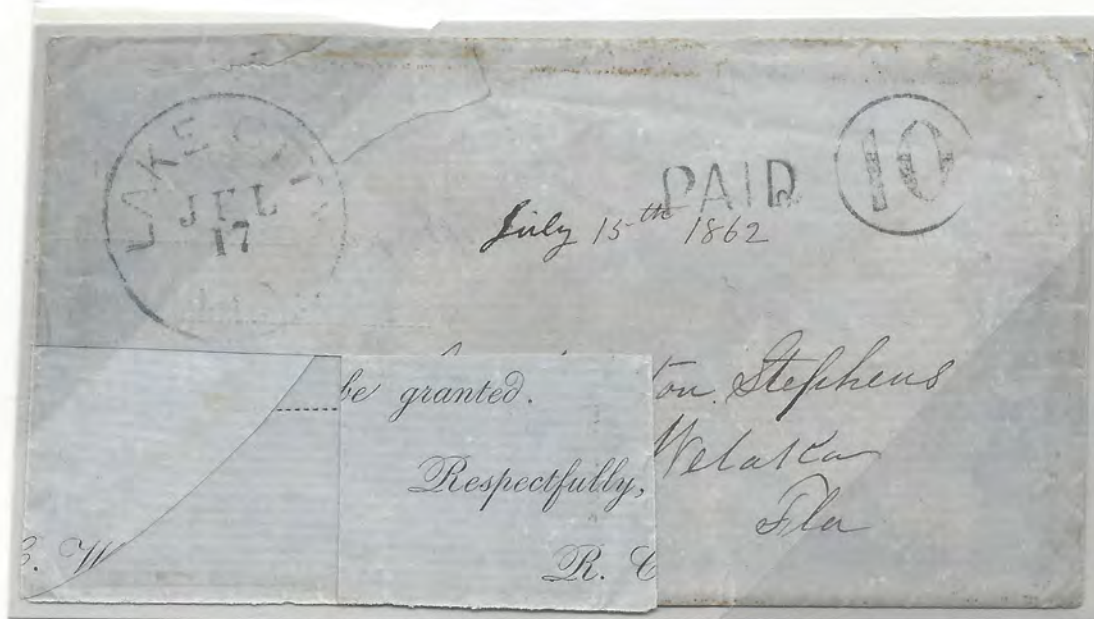 LAKE CITY
JUL
17
PAID 10
July 15th 1862
ton Stephens
Welaka
Fla
be granted.
Respectfully,
R. C
C. W